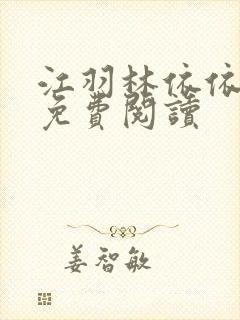 江羽林依依
免費閱讀
姜智敏